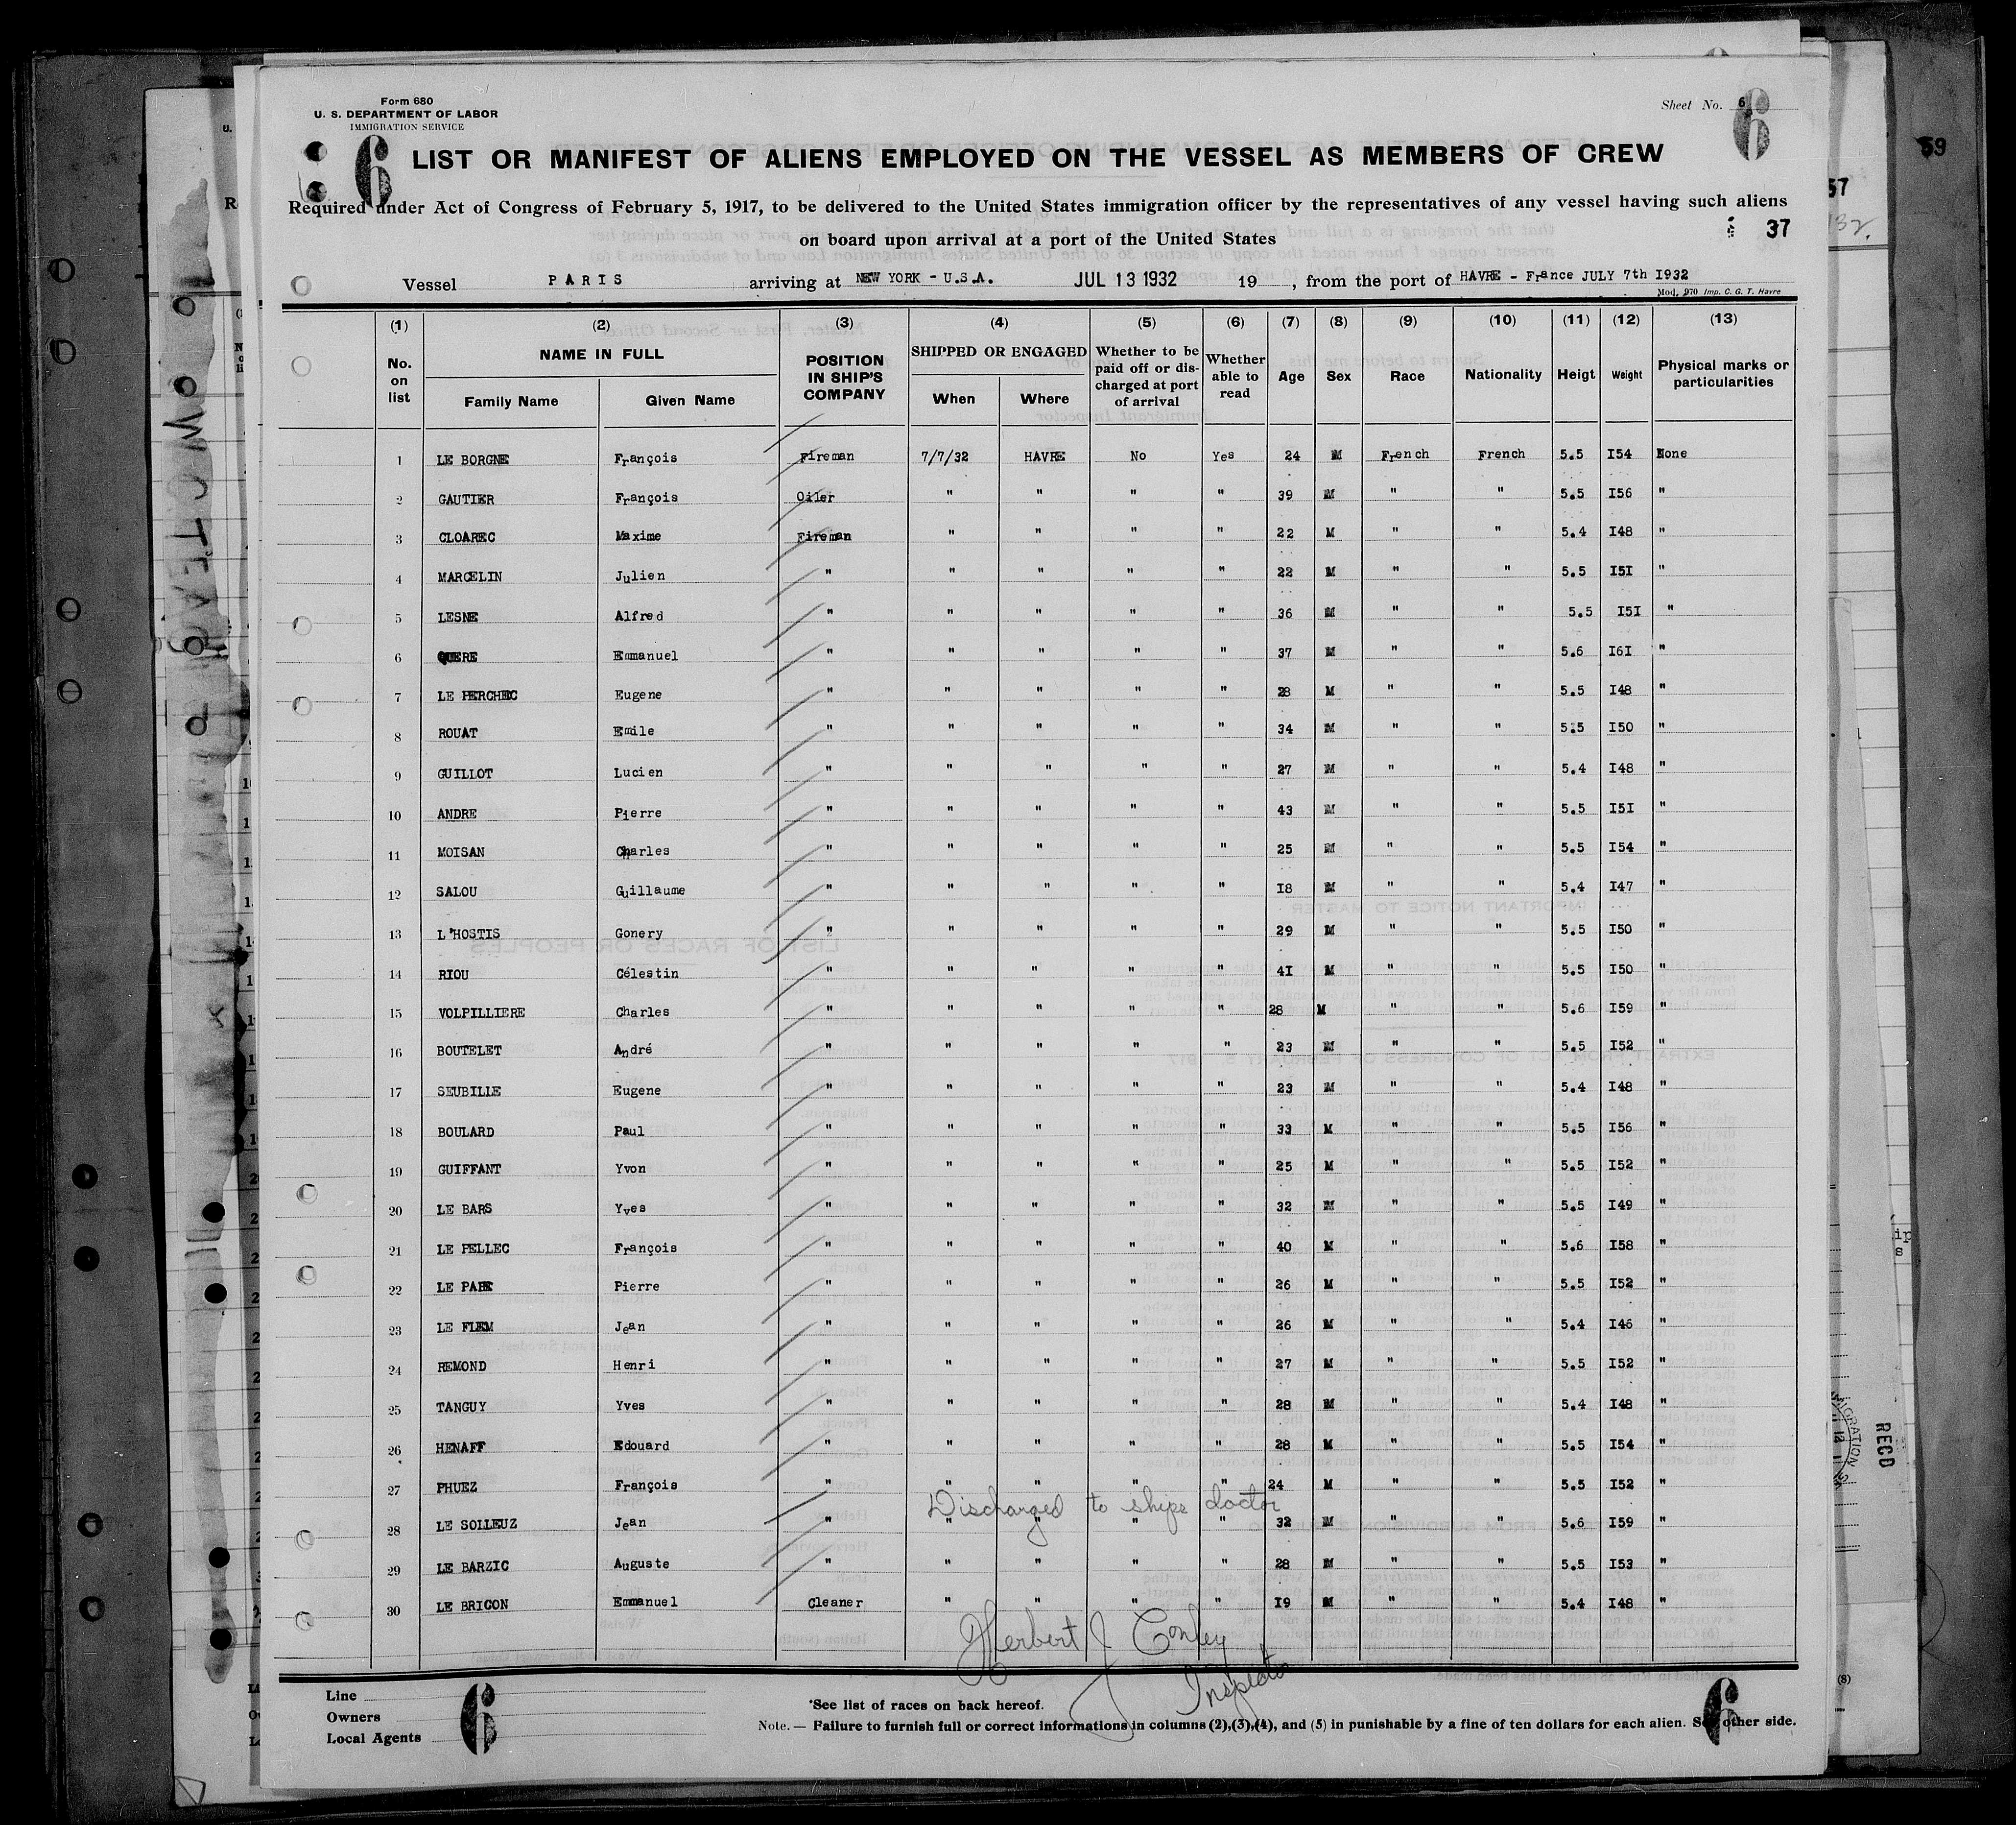 Form 680
U. S. DEPARTMENT OF LABOR
IMMIGRATION SERVICE
Sheet No. 6
6 6
LIST OR MANIFEST OF ALIENS EMPLOYED ON THE VESSEL AS MEMBERS OF CREW
Required under Act of Congress of February 5, 1917, to be delivered to the United States immigration officer by the representatives of any vessel having such aliens
on board upon arrival at a port of the United States
37
Vessel PARIS arriving at NEW YORK - U.S.A. JUL 13 1932 19 , from the port of HAVRE - France JULY 7th I932
Mod. 970 Imp. C. G. T. Havre
(1) (2) (3) (4) (5) (6) (7) (8) (9) (10) (11) (12) (13)
No. on list NAME IN FULL Family Name Given Name POSITION IN SHIP'S COMPANY SHIPPED OR ENGAGED When Where Whether to be paid off or discharged at port of arrival Whether able to read Age Sex Race Nationality Heigt Weight Physical marks or particularities
1 LE BORGNE François Fireman 7/7/32 HAVRE No Yes 24 M French French 5.5 I54 None
2 GAUTIER François Oiler " " " " 39 M " " 5.5 I56 "
3 CLOAREC Maxime Fireman " " " " 22 M " " 5.4 I48 "
4 MARCELIN Julien " " " " " 22 M " " 5.5 I5I "
5 LESNE Alfred " " " " " 36 M " " 5.5 I5I "
6 QUERE Emmanuel " " " " " 37 M " " 5.6 I6I "
7 LE PERCHEC Eugene " " " " " 28 M " " 5.5 I48 "
8 ROUAT Emile " " " " " 34 M " " 5.5 I50 "
9 GUILLOT Lucien " " " " " 27 M " " 5.4 I48 "
10 ANDRE Pierre " " " " " 43 M " " 5.5 I5I "
11 MOISAN Charles " " " " " 25 M " " 5.5 I54 "
12 SALOU Guillaume " " " " " I8 M " " 5.4 I47 "
13 L'HOSTIS Gonery " " " " " 29 M " " 5.5 I50 "
14 RIOU Célestin " " " " " 4I M " " 5.5 I50 "
15 VOLPILLIERE Charles " " " " " 28 M " " 5.6 I59 "
16 BOUTELET André " " " " " 23 M " " 5.5 I52 "
17 SEUBILLE Eugene " " " " " 23 M " " 5.4 I48 "
18 BOULARD Paul " " " " " 33 M " " 5.5 I56 "
19 GUIFFANT Yvon " " " " " 25 M " " 5.5 I52 "
20 LE BARS Yves " " " " " 32 M " " 5.5 I49 "
21 LE PELLEC François " " " " " 40 M " " 5.6 I58 "
22 LE PAPE Pierre " " " " " 26 M " " 5.5 I52 "
23 LE FLEM Jean " " " " " 26 M " " 5.4 I46 "
24 REMOND Henri " " " " " 27 M " " 5.5 I52 "
25 TANGUY Yves " " " " " 28 M " " 5.4 I48 "
26 HENAFF Edouard " " " " " 28 M " " 5.5 I54 "
27 PHUEZ François " " " " " 24 M " " 5.5 I52 "
Discharged to ships doctor
28 LE SOLLEUZ Jean " " " " " 32 M " " 5.6 I59 "
29 LE BARZIC Auguste " " " " " 28 M " " 5.5 I53 "
30 LE BRIGON Emmanuel Cleaner " " " " I9 M " " 5.4 I48 "
Herbert J Conley
Inspector
Line
Owners
Local Agents
6 6
*See list of races on back hereof.
Note. — Failure to furnish full or correct informations in columns (2),(3),(4), and (5) in punishable by a fine of ten dollars for each alien. See other side.
59
57
RECD